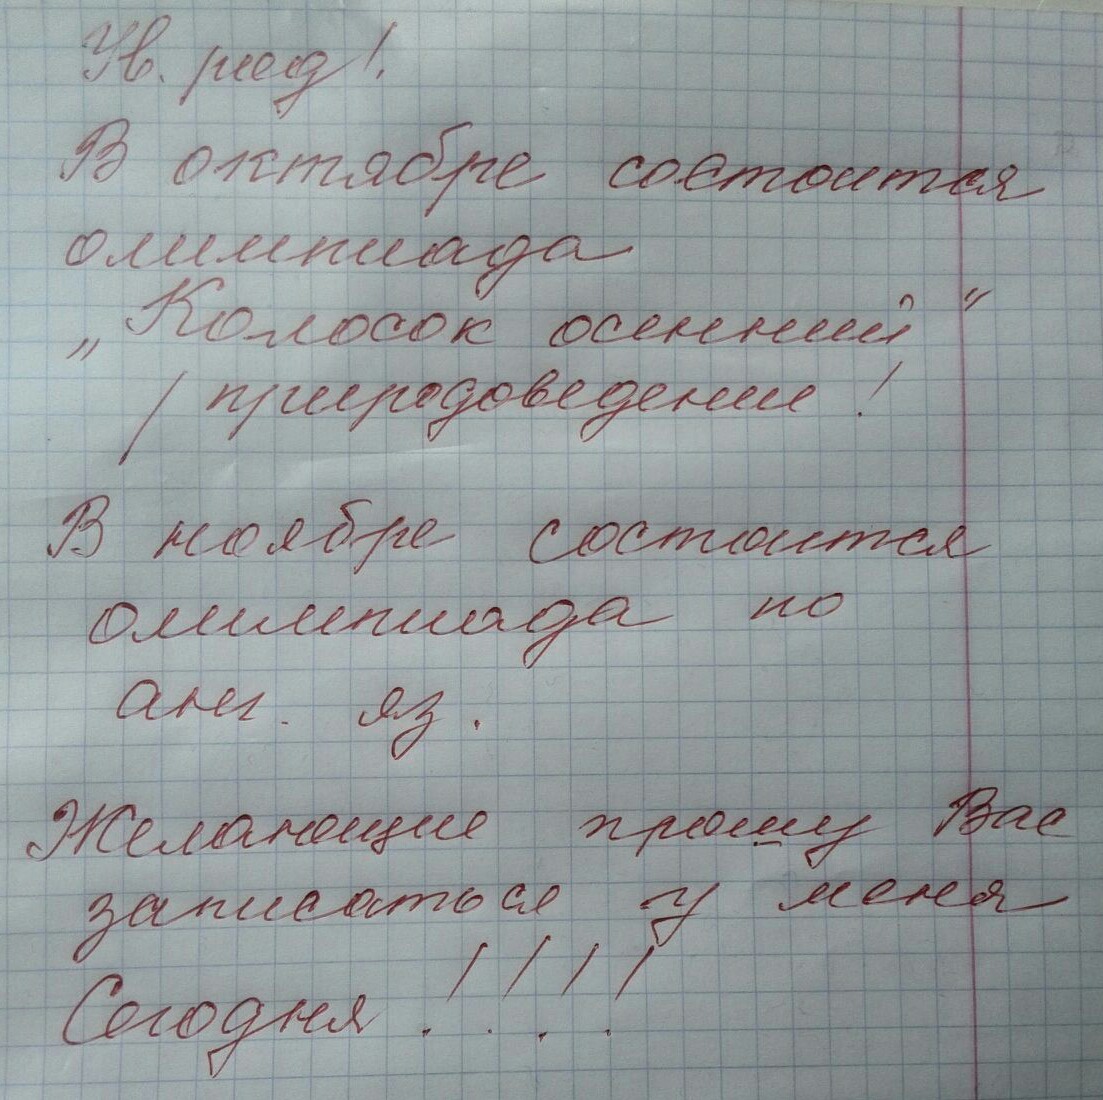 Ув. род!.
В октябре состоится
олимпиада
„Колосок осенний"
/ природоведение!
В ноябре состоится
олимпиада по
анг. яз.
Желающие прошу Вас
записаться у меня
Сегодня!!!!